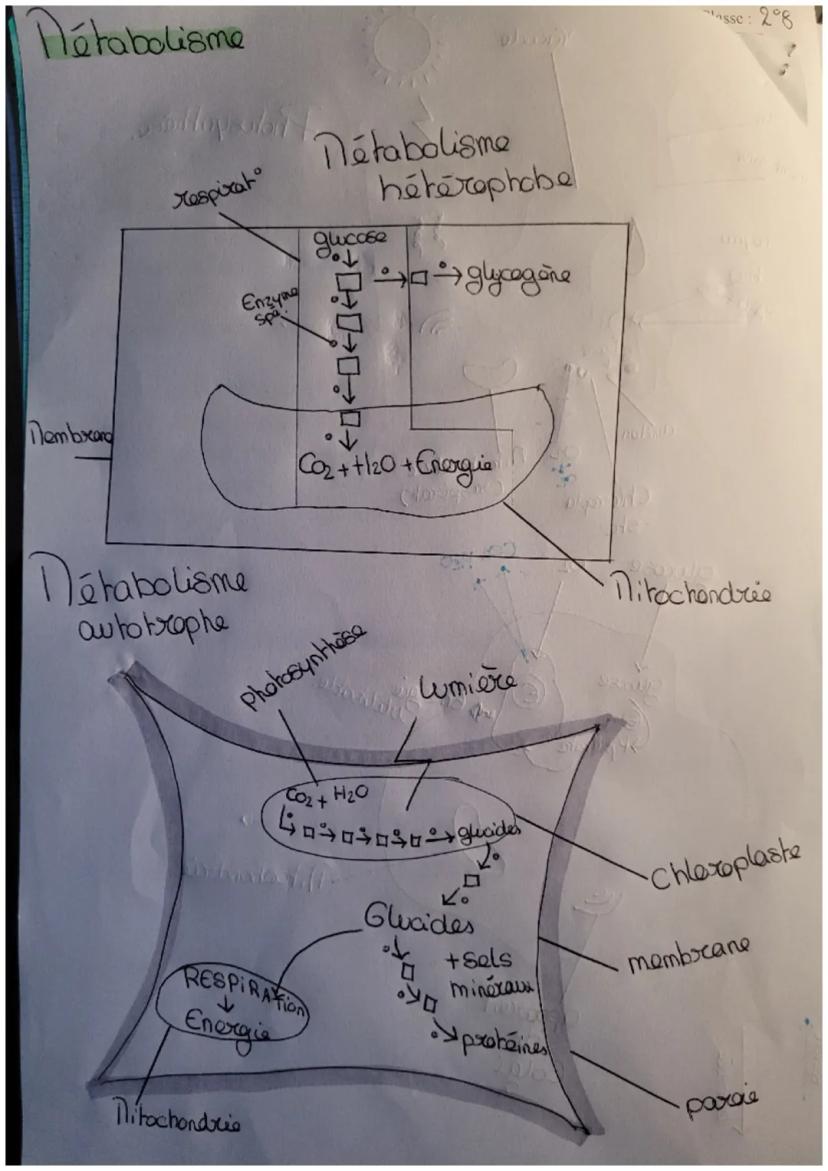 Classe : 2°8
Métabolisme
Métabolisme
hétérophobe
respirat°
glucose
glycogène
Enzyme
spé.
Membrane
CO2 + H2O + Energie
Mitochondrie
Métabolisme
autotrophe
photosynthèse
lumière
CO2 + H2O
glucides
Chloroplaste
Glucides
+ sels
minéraux
membrane
RESPIRAtion
Energie
protéines
paroie
Mitochondrie